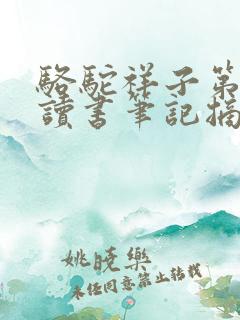 駱駝祥子第
讀書筆記摘
姚曉樂
未經同意禁止轉載